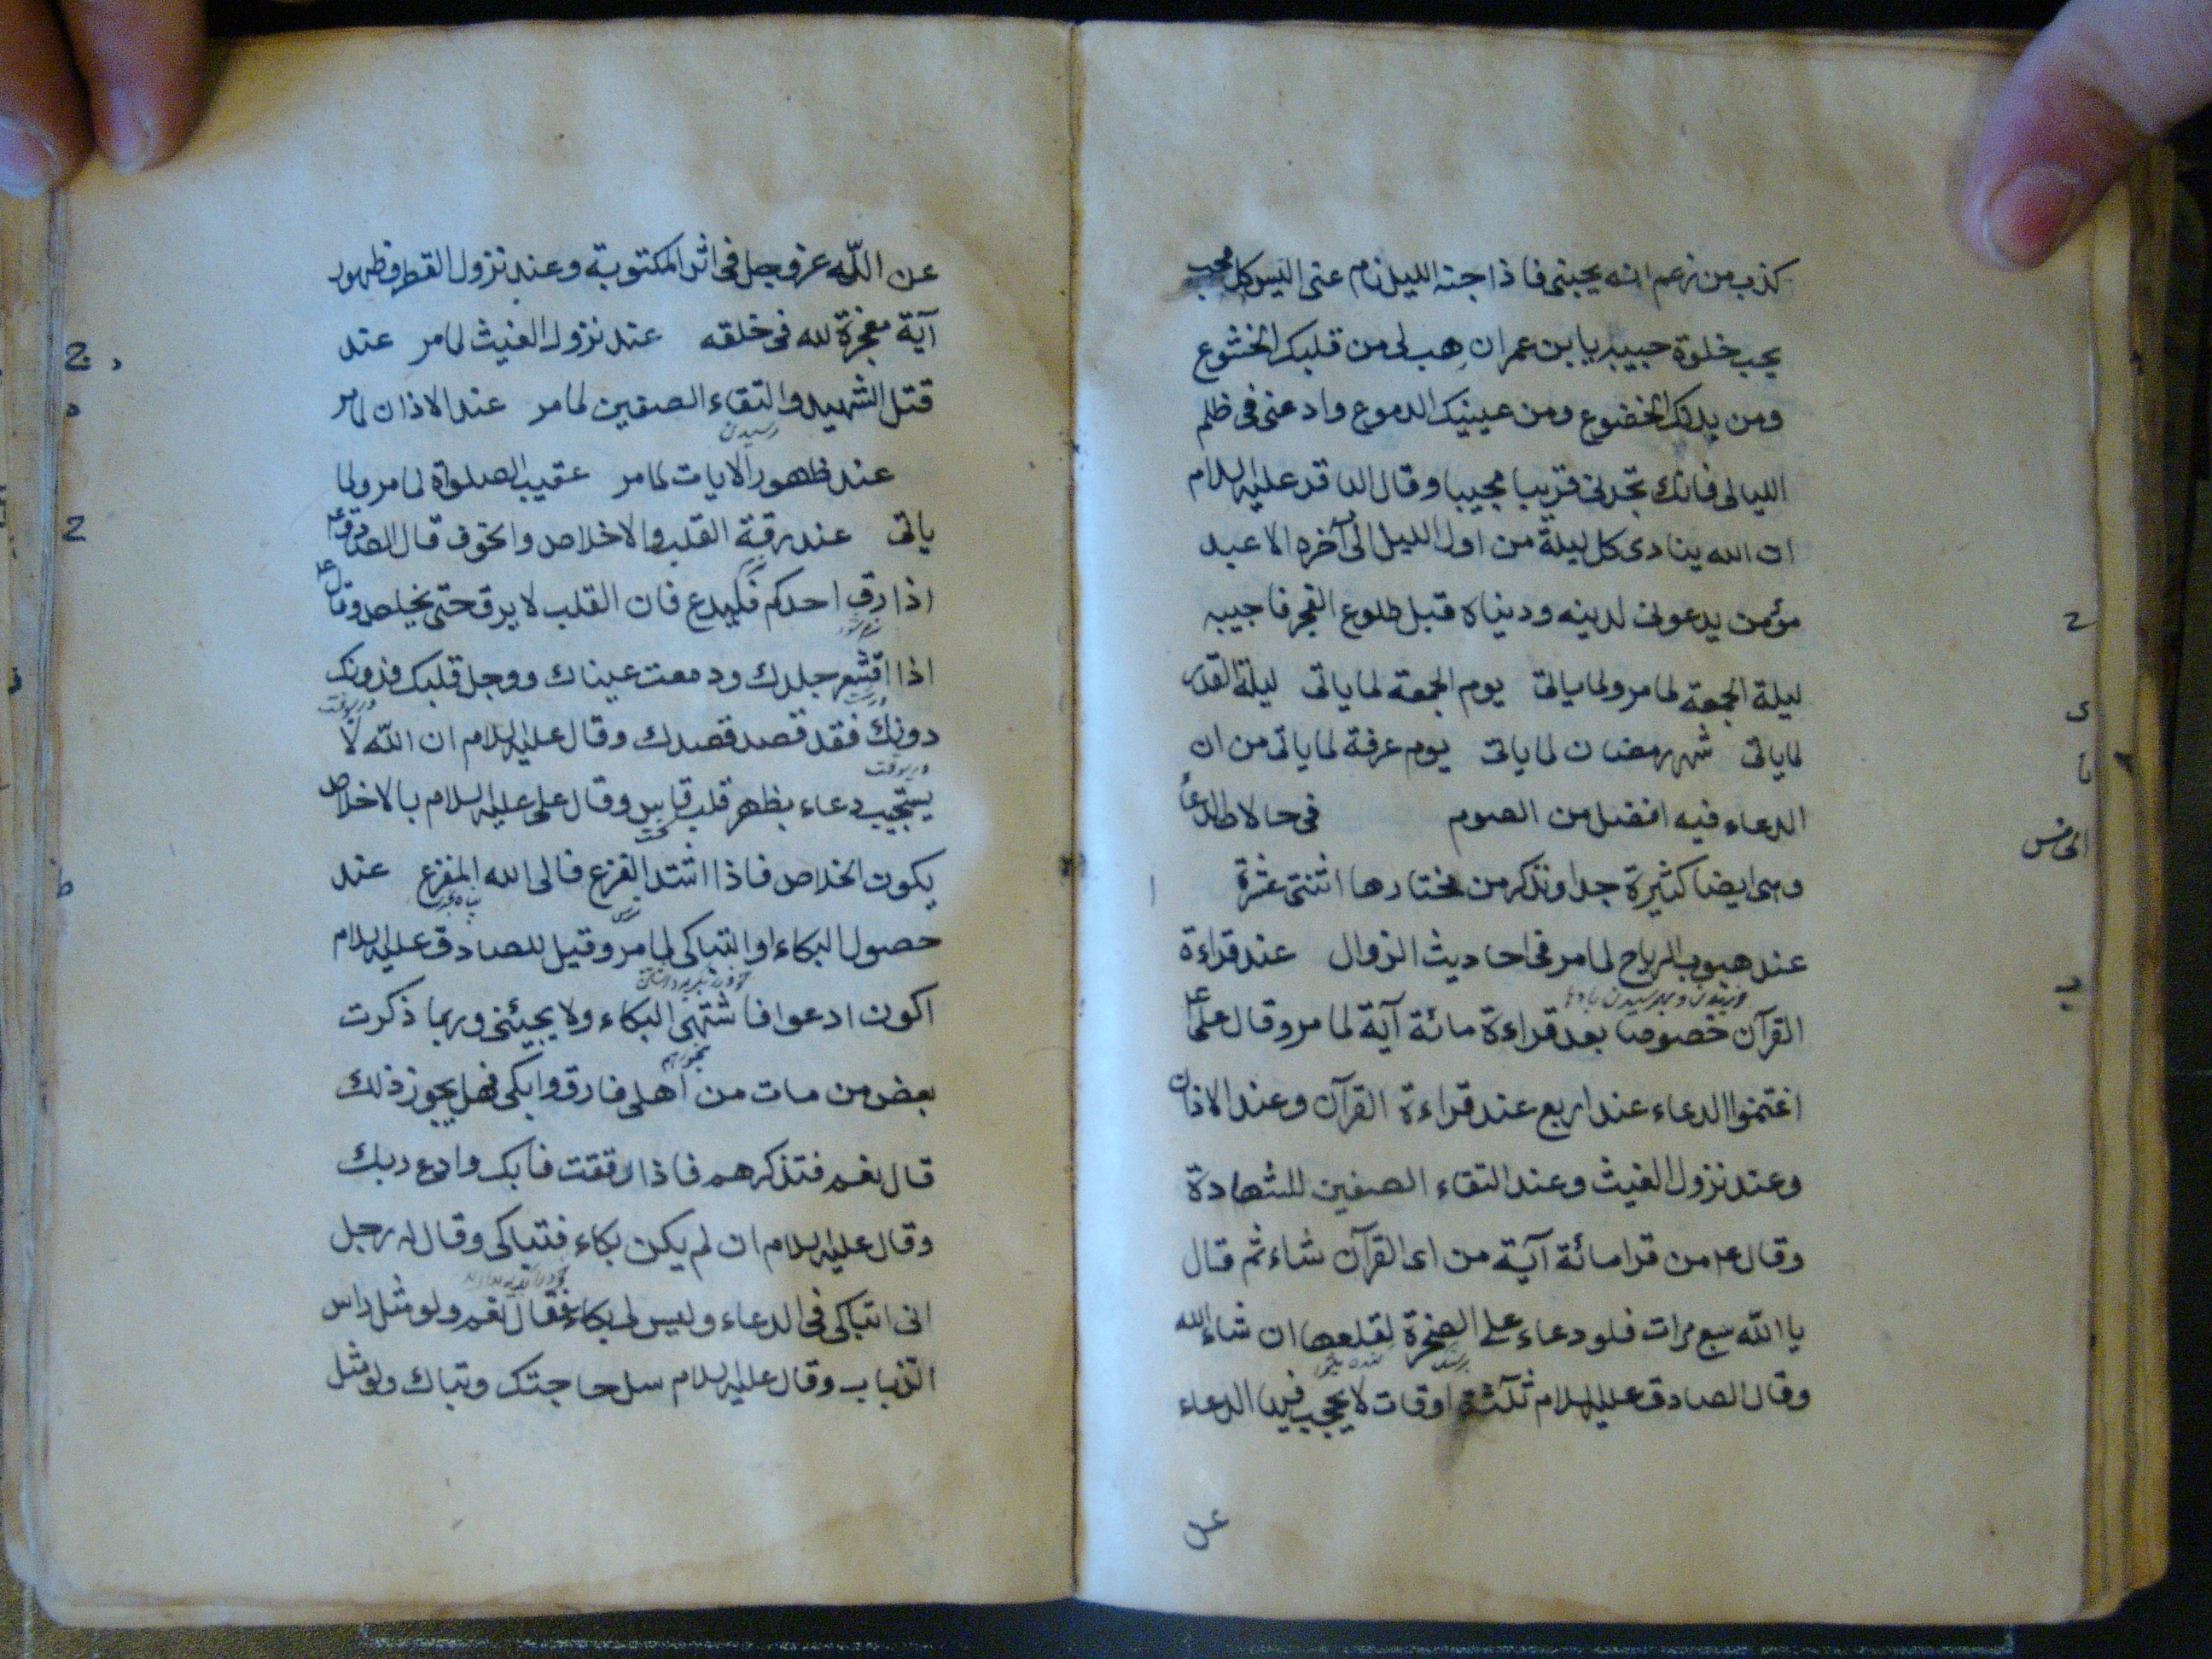 كذب من زعم انه يحبنى فاذا جنه الليل نام عنى اليس كل محب
يحب خلوة حبيبه يا بن عمران هب لى من قلبك الخشوع
ومن بدنك الخضوع ومن عينيك الدموع وادعنى فى ظلم
الليالى فانك تجدنى قريبا مجيبا وقال الباقر عليه السلام
ان الله ينادى كل ليلة من اول الليل الى آخره الا عبد
مؤمن يدعونى لدينه ودنياه قبل طلوع الفجر فاجيبه
ليلة الجمعة لما مر ولما ياتى يوم الجمعة لما ياتى ليلة القدر
لما ياتى شهر رمضان لما ياتى يوم عرفة لما ياتى من ان
الدعاء فيه افضل من الصوم فى حالات الدعاء
وهى ايضا كثيرة جدا ونذكر من مختارها اثنتى عشرة
عند هبوب الرياح لما مر فى احاديث الزوال عند قراءة
القرآن خصوصا بعد قراءة مائة آية لما مر وقال على ع
اغتنموا الدعاء عند اربع عند قراءة القرآن وعند الاذان
وعند نزول الغيث وعند التقاء الصفين للشهادة
وقال ع من قرا مائة آية من اى القرآن شاء ثم قال
يا الله سبع مرات فلو دعاء على الصخرة لقلعها ان شاء الله
وقال الصادق عليه السلام ثلثة اوقات لا يحجب فيها الدعاء
عن
عن الله عز وجل فى اثر المكتوبة وعند نزول القطر وظهور
آية معجزة لله فى خلقه عند نزول الغيث لما مر عند
قتل الشهيد والتقاء الصفين لما مر عند الاذان لما مر
رسيدن
عند ظهور الايات لما مر عقيب الصلوة لما مر ولما
ياتى عند رقة القلب والاخلاص والخوف قال الصادق ع
اذا رق احدكم فليدع فان القلب لا يرق حتى يخلص وقال ع
نرم شود
اذا اقشعر جلدك ودمعت عيناك ووجل قلبك فدونك
دونك فقد قصد قصدك وقال عليه السلام ان الله لا
يستجيب دعاء بظهر قلب قاس وقال على عليه السلام بالاخلاص
يكون الخلاص فاذا اشتد الفزع فالى الله المفزع عند
حصول البكاء او التباكى لما مر وقيل للصادق عليه السلام
اكون ادعوا فاشتهى البكاء ولا يجيئنى وربما ذكرت
بعض من مات من اهلى فارق وابكى فهل يجوز ذلك
قال نعم فتذكرهم فاذا رققت فابك وادع ربك
وقال عليه السلام ان لم يكن بكاء فتباكى وقال له رجل
انى اتباكى فى الدعاء وليس لى بكاء فقال نعم ولو مثل راس
الذباب وقال عليه السلام سل حاجتك وتباك ولو مثل